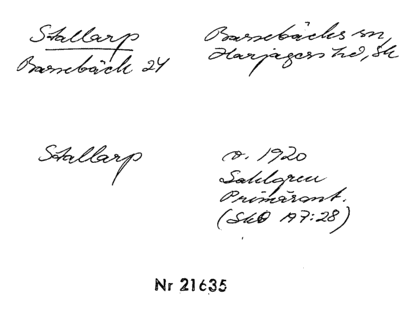 Stallarp
Barsebäck 24
Barsebäcks sn,
Harjagers hd, Sk
Stallarp
o. 1920
Sahlgren
Primärant.
(SkO A7:28)
Nr 21635